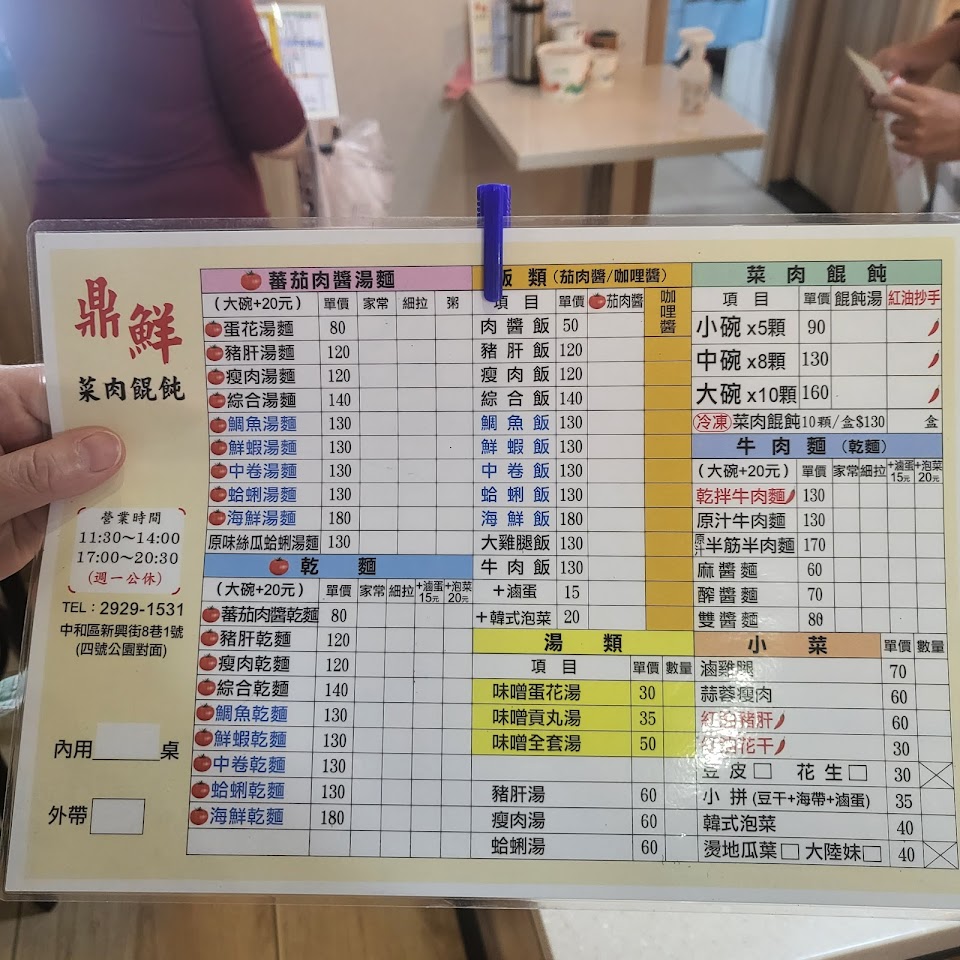 鼎鮮
菜肉餛飩
營業時間
11:30～14:00
17:00～20:30
(週一公休)
TEL：2929-1531
中和區新興街8巷1號
(四號公園對面)
內用 桌
外帶
蕃茄肉醬湯麵
(大碗+20元) 單價 家常 細拉 粥
蛋花湯麵 80
豬肝湯麵 120
瘦肉湯麵 120
綜合湯麵 140
鯛魚湯麵 130
鮮蝦湯麵 130
中卷湯麵 130
蛤蜊湯麵 130
海鮮湯麵 180
原味絲瓜蛤蜊湯麵 130
乾 麵
(大碗+20元) 單價 家常 細拉 +滷蛋15元 +泡菜20元
蕃茄肉醬乾麵 80
豬肝乾麵 120
瘦肉乾麵 120
綜合乾麵 140
鯛魚乾麵 130
鮮蝦乾麵 130
中卷乾麵 130
蛤蜊乾麵 130
海鮮乾麵 180
飯 類 (茄肉醬/咖哩醬)
項 目 單價 茄肉醬 咖哩醬
肉醬飯 50
豬肝飯 120
瘦肉飯 120
綜合飯 140
鯛魚飯 130
鮮蝦飯 130
中卷飯 130
蛤蜊飯 130
海鮮飯 180
大雞腿飯 130
牛肉飯 130
＋滷蛋 15
＋韓式泡菜 20
湯 類
項 目 單價 數量
味噌蛋花湯 30
味噌貢丸湯 35
味噌全套湯 50
豬肝湯 60
瘦肉湯 60
蛤蜊湯 60
菜肉餛飩
項 目 單價 餛飩湯 紅油抄手
小碗x5顆 90
中碗x8顆 130
大碗x10顆 160
冷凍菜肉餛飩10顆/盒$130 盒
牛肉麵 (乾麵)
(大碗+20元) 單價 家常 細拉 +滷蛋15元 +泡菜20元
乾拌牛肉麵 130
原汁牛肉麵 130
原汁半筋半肉麵 170
麻醬麵 60
醡醬麵 70
雙醬麵 80
小 菜 單價 數量
滷雞腿 70
蒜蓉瘦肉 60
紅油豬肝 60
紅油花干 30
豆皮□ 花生□ 30
小拼(豆干+海帶+滷蛋) 35
韓式泡菜 40
燙地瓜葉□ 大陸妹□ 40